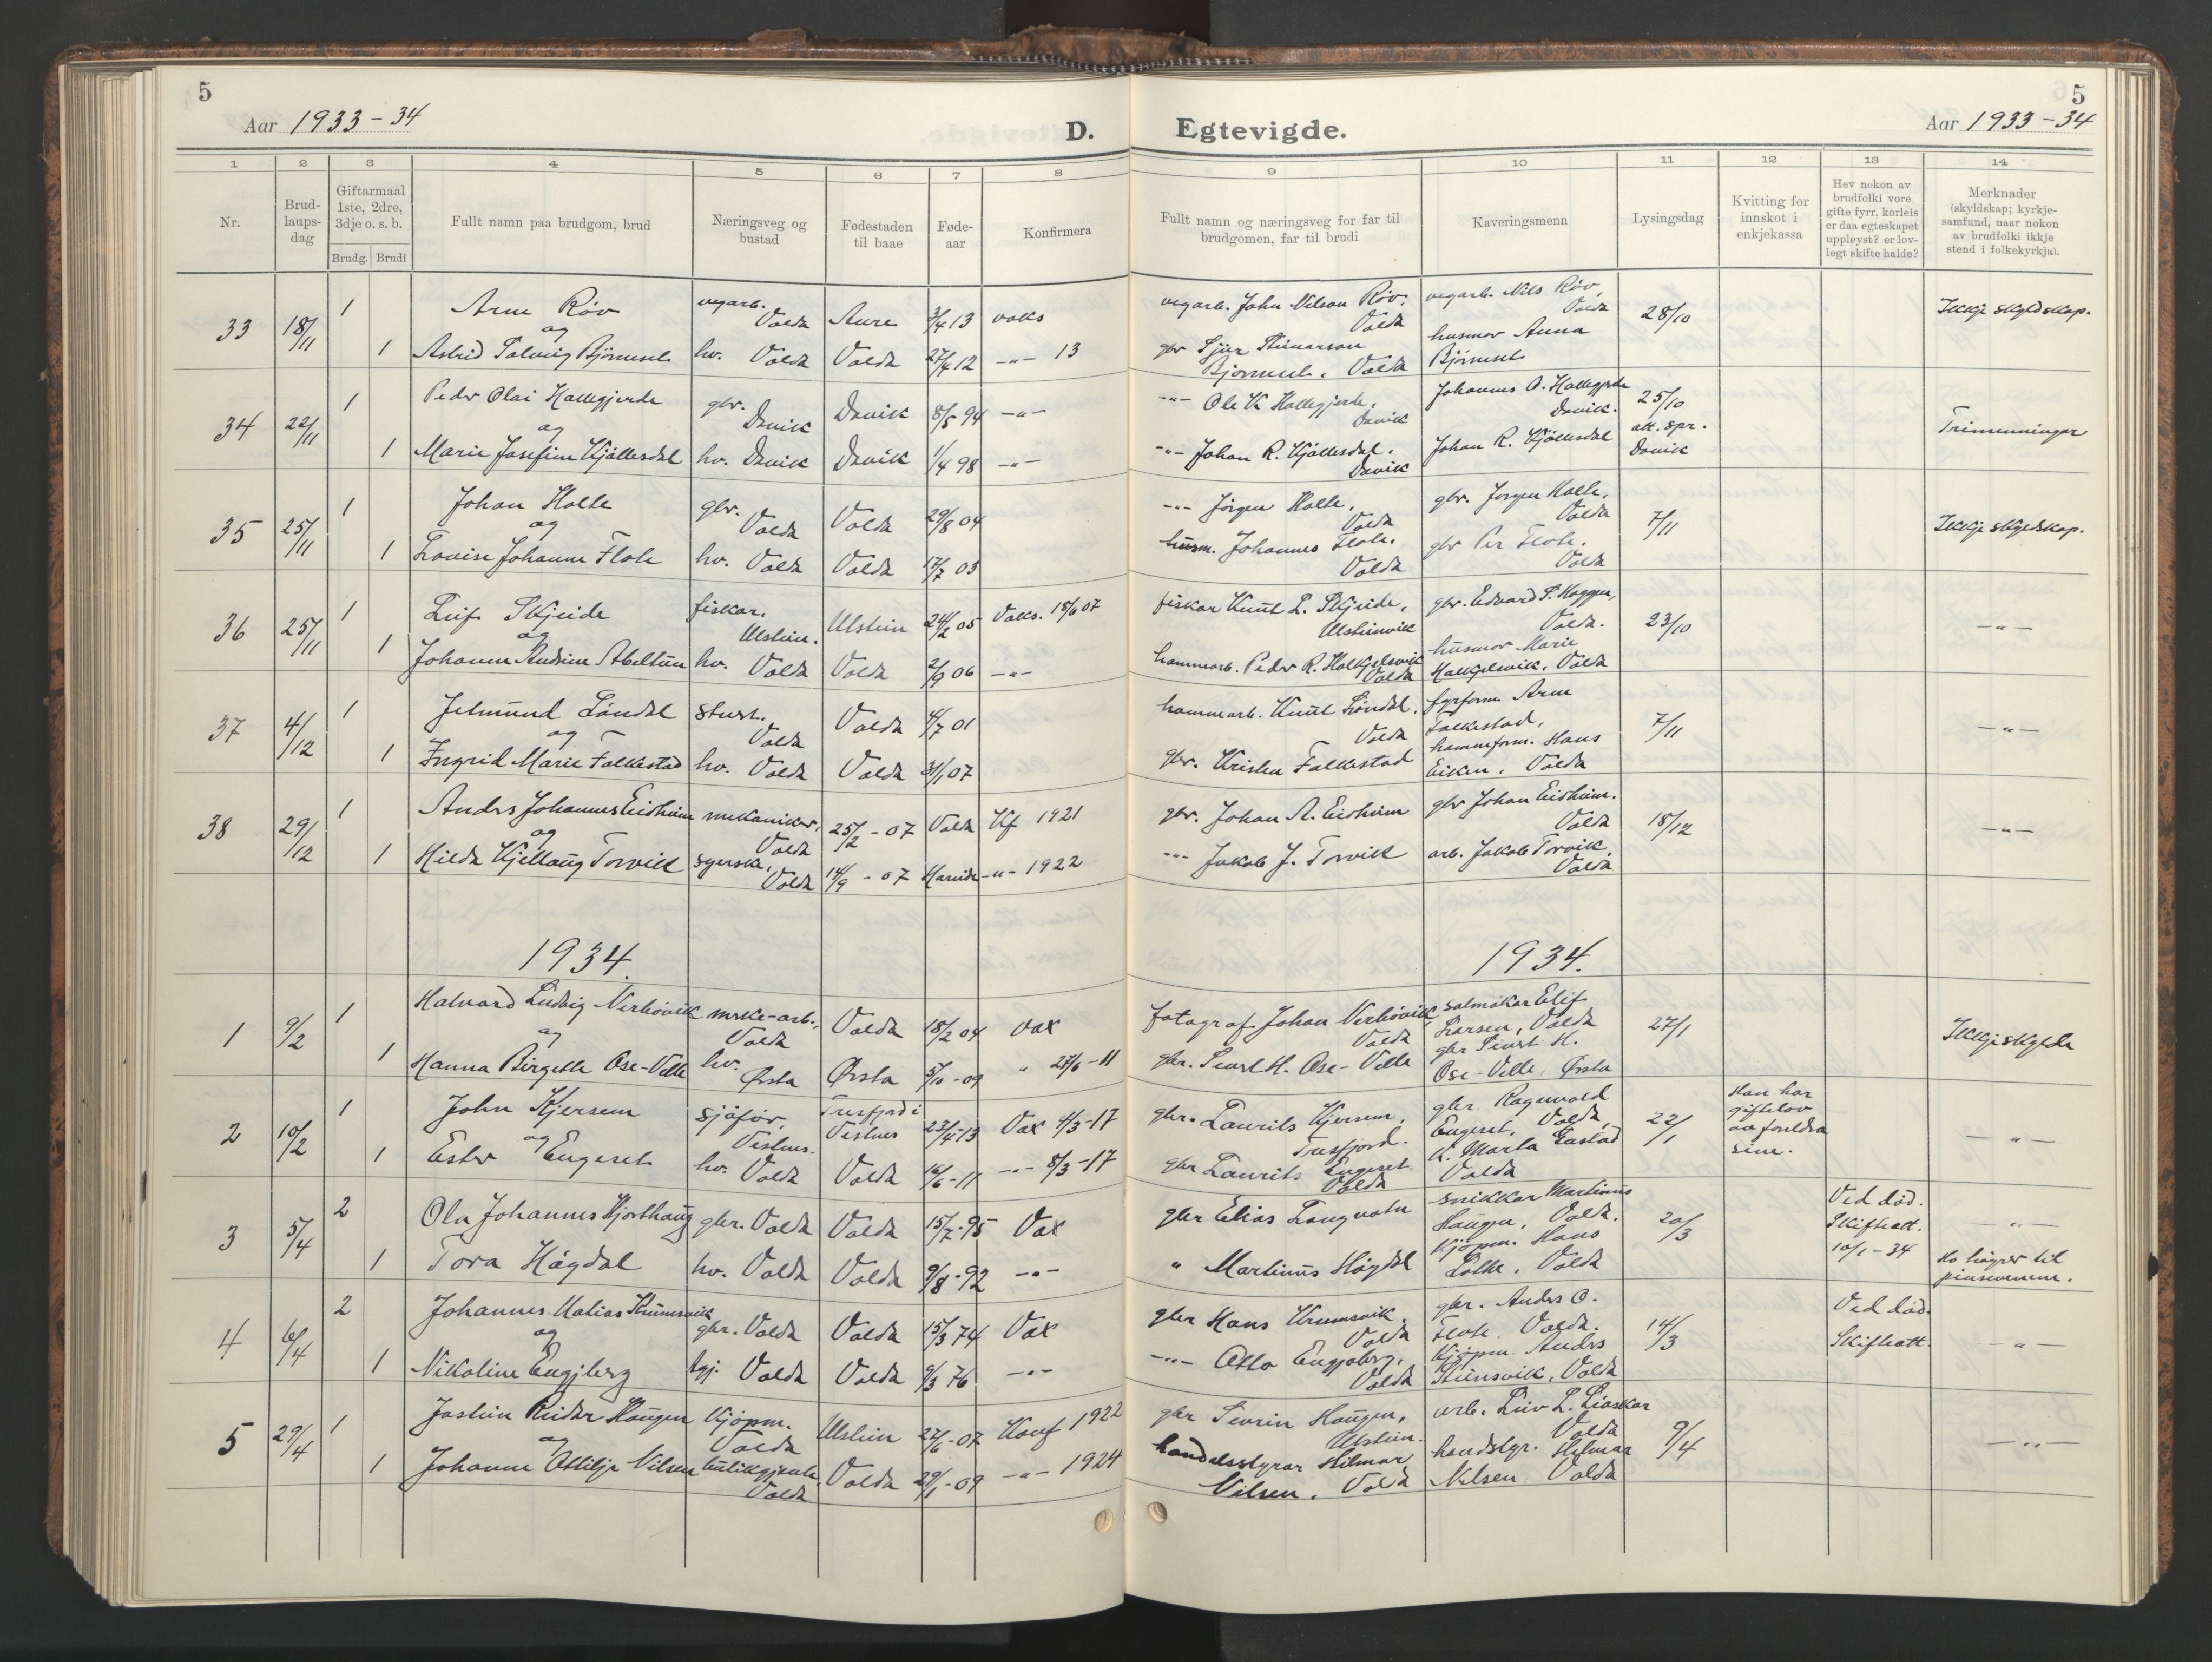 5
Aar 1933-34
D.
1 2 3 4 5 6 7 8
Nr.
Brud-
laups-
dag
Giftarmaal
1ste, 2dre,
3dje o. s. b.
Brudg. Brudi
Fullt namn paa brudgom, brud
Næringsveg og
bustad
Fødestaden
til baae
Føde-
aar
Konfirmera
33 18/11 1 Arne Røv vegarb. Volda Aure 3/4 13 voks
og
1 Astrid Solveig Bjørneset hv. Volda Volda 27/4 12 -"- 13
34 22/11 1 Peder Olai Hallegjerde gbr. Davik Davik 8/5 94 -"-
og
1 Marie Josefine Kjøllesdal hv. Davik Davik 1/4 98 -"-
35 25/11 1 Johan Holte gbr. Volda Volda 29/8 04
og
1 Lovise Johanne Flote hv. Volda Volda 17/7 03
36 25/11 1 Leif Skjeide fiskar. Ulstein. Ulstein 24/2 05 Voks. 18/6 07
og
1 Johanne Andrine hv. Volda Volda 2/9 06 -"-
37 4/12 1 Jetmund Løndal Volda Volda 4/7 01
og
1 Ingrid Marie Folkestad hv. Volda Volda 31/1 07
38 29/12 1 Anders Johannes Eidheim mekaniker, Volda 25/2 - 07 Volda Kf 1921
og
1 Hilda Kjellaug Torvik syerske, Volda 14/9 - 07 Hareide -"- 1922
1934.
1 9/2 1 Halvard Ludvig Nerhövik mrke-arb., Volda Volda 18/2 04 Vax
og
1 Hanna Birgitte Ose-Velle hv. Ørsta Ørsta 5/10 - 09 " 27/6 - 11
2 10/2 1 John Kjersem sjåfør, Vestnes. Tresfjord i Vestnes 23/4-13 Vax 4/3-17
og
1 Ester Engeset hv. Volda Volda 16/6 - 11 -"- 8/3-17
3 5/4 2 Ola Johannes Hjorthaug gbr. Volda Volda 15/7-95 Vax
1 Tora Høgdal hv. Volda Volda 9/8-92 -"-
4 6/4 2 Johannes Matias Krumsvik gbr. Volda Volda 15/3 74 Vax
og
1 Nikoline Engjberg tgj. Volda Volda 9/3 76 -"-
5 29/4 1 Jostein Reidar Haugen Kjöpm. Volda Ulstein 27/6-07 Konf 1922
og
1 Johanne Ottilje Nilsen butikgjente. Volda Volda 29/1-09 -"- 1924
Egtevigde.
5
Aar 1933-34
9 10 11 12 13 14
Fullt namn og næringsveg for far til
brudgomen, far til brudi
Kaveringsmenn
Lysingsdag
Kvitting for
innskot i
enkjekassa
Hev nokon av
brudfolki vore
gifte fyrr, korleis
er daa egteskapet
uppløyst? er lov-
legt skifte halde?
Merknader
(skyldskap; kyrkje-
samfund, naar nokon
av brudfolki ikkje
stend i folkekyrkja).
vegarb. John Nilsen Røv. Volda vegarb. Nils Røv, Volda 28/10 Ikkje skyldskap.
gbr Sjur Steinarson Bjørneset. Volda husmor Anna Bjørneset
-"- Ole K Hallegjerde, Davik Johannes O. Hallegjerde Davik. 25/10 att. spr. Davik Trimenningar
-"- Johan R. Kjøllesdal, Davik Johan R. Kjøllesdal
-"- Jørgen Holte, Volda gbr. Jørgen Holte, Volda 7/11 Ikkje skyldskap.
husm. Johannes Flote. Volda gbr Per Flote. Volda
fiskar Knut L. Skjeide, Ulsteinvik gbr. Edvard P. Volda. 23/10 -"-
Peder R. Halkjelsvik Volda husmor Marie Halkjelsvik, Volda
Knut Løndal. Volda Arne Folkestad, 7/11 -"-
gbr. Kristen Folkestad Hans Eiken, Volda
gbr. Johan A. Eidheim gbr Johan Eidheim. Volda 18/12 -"-
-"- Jakob J. Torvik arb. Jakob Torvik, Volda
1934.
fotograf Johan Nerhövik Volda salmakar Elif Larsen, Volda 27/1 Ikkje skylde
gbr. Sivert H. Ose-Velle gbr Sivert H. Ose-Velle, Ørsta
gbr. Laurits Kjersem, Tresfjord. gbr Ragnvald Engeset, Volda, 22/1 Han har giftelov av foreldra sine. -"-
gbr Laurits Engeset Volda K. Marta Volda
gbr Elias Langvatn snikkar Martinus Haugen, Volda. 20/3 Ved död. Skifteatt. 10/1-34 -"-
" Martinus Høgdal Kjöpm. Hans Lothe, Volda Ho høyrer til pinsevenene.
gbr Hans Krumsvik. Volda gbr. Anders O. Flote. Volda. 14/3 Ved död. Skifteatt. -"-
-"- Otto Engjaberg, Volda Kjöpm Anders Steinsvik, Volda
gbr Sivrin Haugen, Ulstein. arb. Liv L. Liaskar Volda 9/4 -"-
handelsstyrar Hilmar Nilsen, Volda handstyr. Hilmar Nilsen Volda